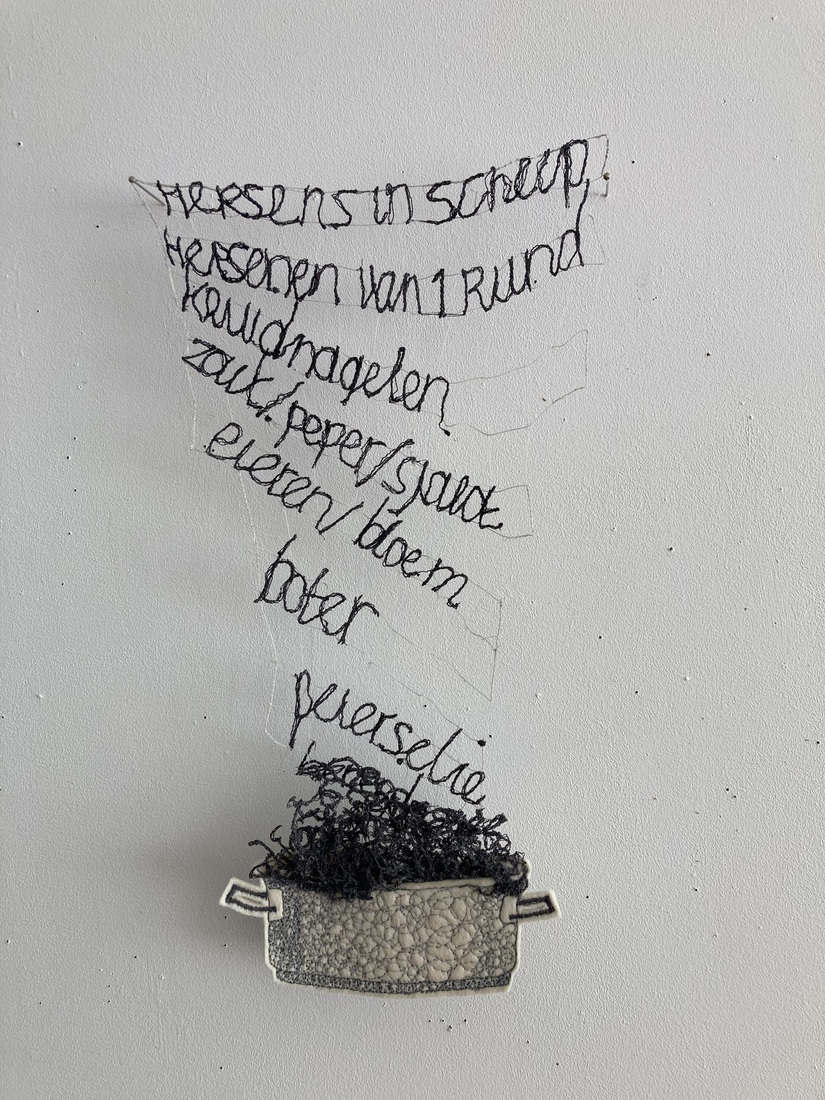 Hersens in schelp.
Hersenen van 1 Rund
Kruidnagelen.
zout/peper/sjalot
eieren/bloem
boter
peterselie